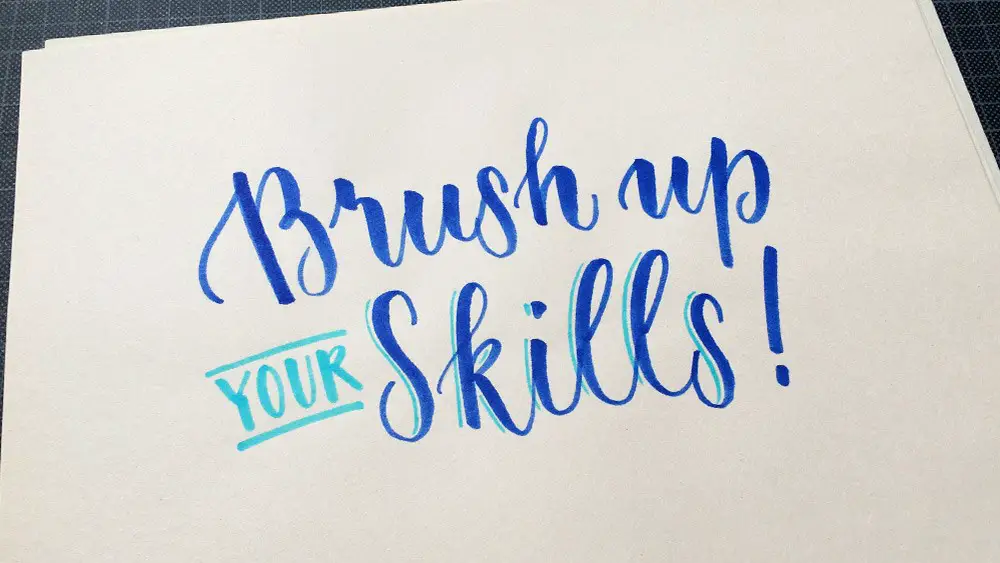 Brush up
YOUR Skills!